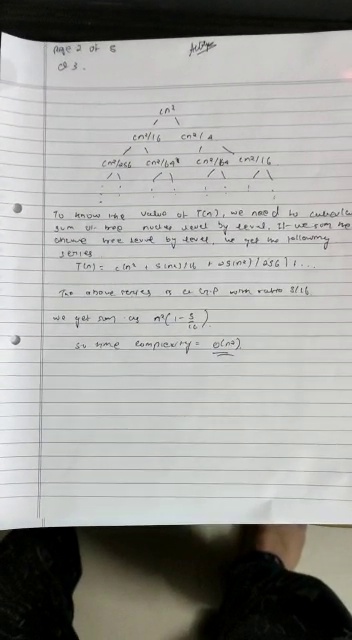 Page 2 of 8
Q 3.
cn²
cn²/16 cn²/4
cn²/256 cn²/64 cn²/64 cn²/16
To know the value of T(n), we need to calculate
sum of tree nodes level by level. If we sum the
above tree level by level, we get the following
series
T(n) = c(n² + 5(n²)/16 + 25(n²)/256) + ...
The above series is a G.P with ratio 5/16
we get sum as n²(1 - 5/16)
so time complexity = O(n²)